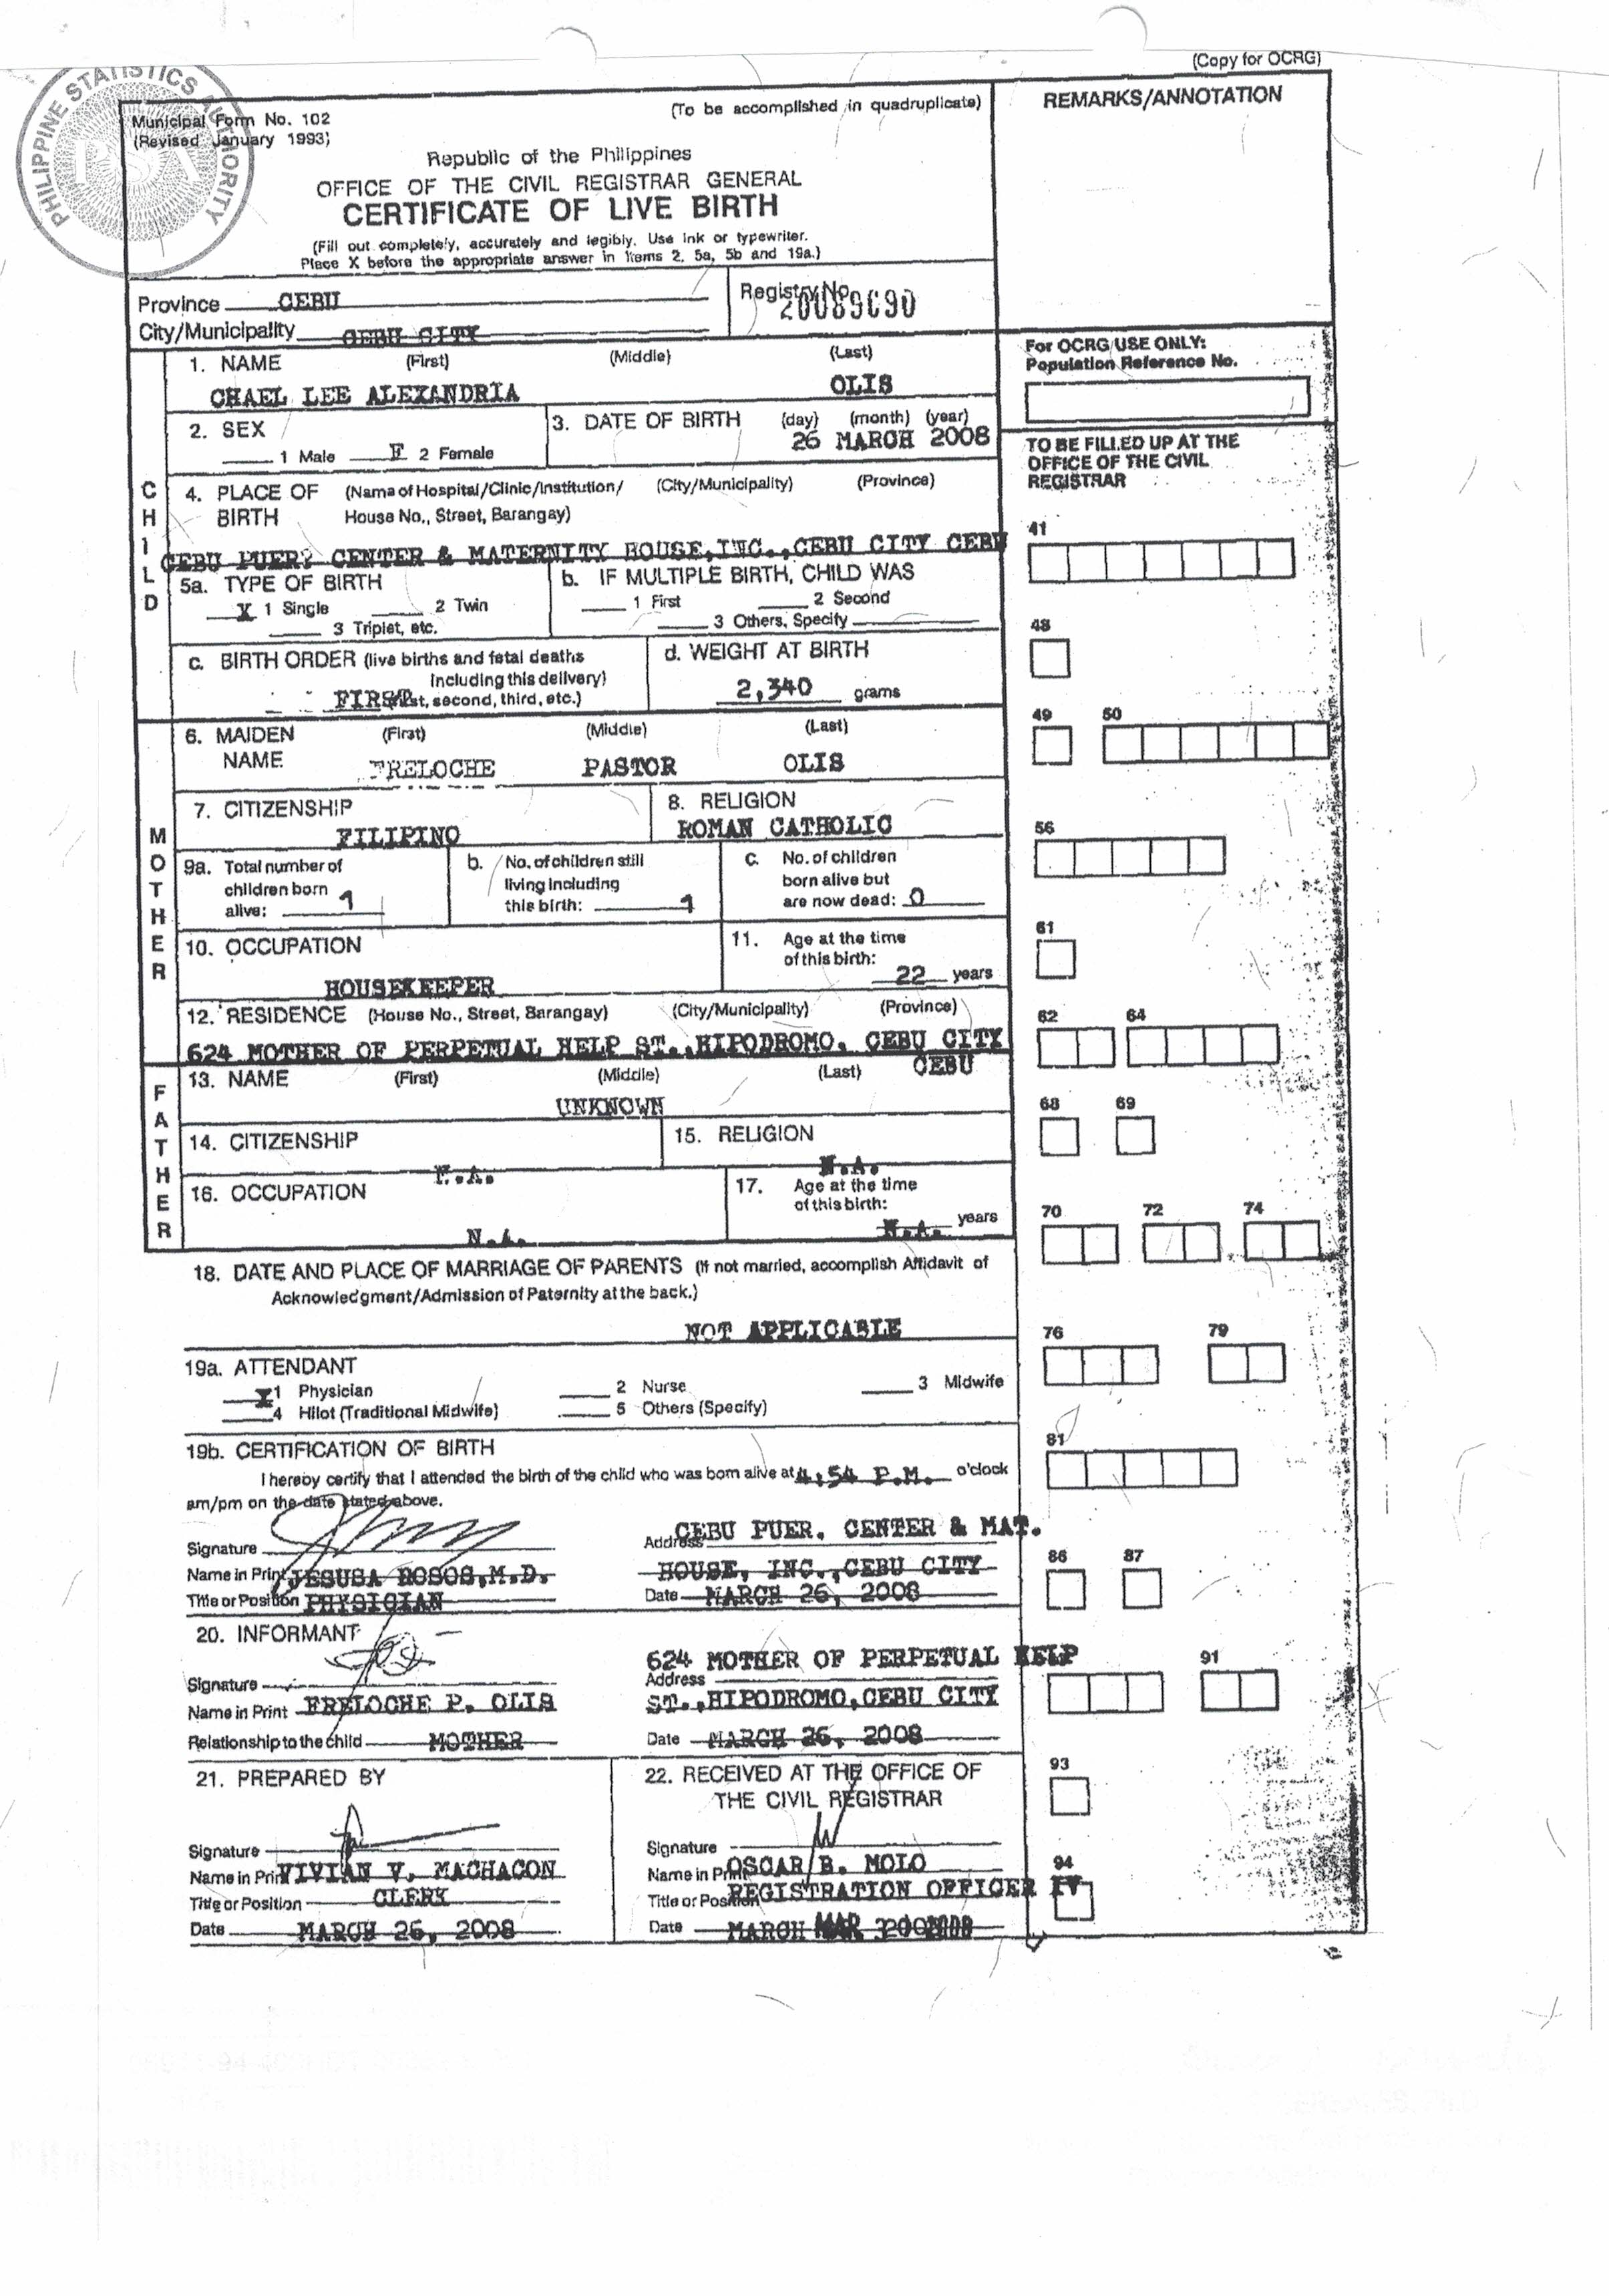 (Copy for OCRG)
PHILIPPINE STATISTICS AUTHORITY
PSA
Municipal Form No. 102
(To be accomplished in quadruplicate)
REMARKS/ANNOTATION
(Revised January 1993)
Republic of the Philippines
OFFICE OF THE CIVIL REGISTRAR GENERAL
CERTIFICATE OF LIVE BIRTH
(Fill out completely, accurately and legibly. Use ink or typewriter.
Place X before the appropriate answer in Items 2, 5a, 5b and 19a.)
Province CEBU
Registry No.
City/Municipality CEBU CITY
1. NAME (First) (Middle) (Last)
CHAEL LEE ALEXANDRIA OLIS
For OCRG USE ONLY:
Population Reference No.
2. SEX
1 Male F 2 Female
3. DATE OF BIRTH (day) (month) (year)
26 MARCH 2008
TO BE FILLED UP AT THE
OFFICE OF THE CIVIL
REGISTRAR
CHILD
4. PLACE OF BIRTH (Name of Hospital/Clinic/Institution/ (City/Municipality) (Province)
House No., Street, Barangay)
CEBU PUER. CENTER & MATERNITY HOUSE,INC.,CEBU CITY CEBU
41
5a. TYPE OF BIRTH
X 1 Single 2 Twin
3 Triplet, etc.
b. IF MULTIPLE BIRTH, CHILD WAS
1 First 2 Second
3 Others, Specify
48
c. BIRTH ORDER (live births and fetal deaths
including this delivery)
FIRST second, third, etc.)
d. WEIGHT AT BIRTH
2,340 grams
49 50
MOTHER
6. MAIDEN NAME (First) (Middle) (Last)
FRELOCHE PASTOR OLIS
7. CITIZENSHIP
FILIPINO
8. RELIGION
ROMAN CATHOLIC
56
9a. Total number of
children born
alive: 1
b. No. of children still
living including
this birth: 1
c. No. of children
born alive but
are now dead: 0
10. OCCUPATION
HOUSEKEEPER
11. Age at the time
of this birth:
22 years
61
12. RESIDENCE (House No., Street, Barangay) (City/Municipality) (Province)
624 MOTHER OF PERPETUAL HELP ST.,HIPODROMO, CEBU CITY
CEBU
62 64
FATHER
13. NAME (First) (Middle) (Last)
UNKNOWN
68 69
14. CITIZENSHIP
N.A.
15. RELIGION
N.A.
16. OCCUPATION
N.A.
17. Age at the time
of this birth:
N.A. years
70 72 74
18. DATE AND PLACE OF MARRIAGE OF PARENTS (If not married, accomplish Affidavit of
Acknowledgment/Admission of Paternity at the back.)
NOT APPLICABLE
76 79
19a. ATTENDANT
X 1 Physician 2 Nurse 3 Midwife
4 Hilot (Traditional Midwife) 5 Others (Specify)
19b. CERTIFICATION OF BIRTH
81
I hereby certify that I attended the birth of the child who was born alive at 4:54 P.M. o'clock
am/pm on the date stated above.
Signature
Name in Print JESUSA BOSOS,M.D.
Title or Position PHYSICIAN
Address CEBU PUER. CENTER & MAT.
HOUSE, INC.,CEBU CITY
Date MARCH 26, 2008
86 87
20. INFORMANT
Signature
Name in Print FRELOCHE P. OLIS
Relationship to the child MOTHER
624 MOTHER OF PERPETUAL HELP
Address
ST.,HIPODROMO,CEBU CITY
Date MARCH 26, 2008
91
21. PREPARED BY
Signature
Name in Print VIVIAN V. MACHACON
Title or Position CLERK
Date MARCH 26, 2008
22. RECEIVED AT THE OFFICE OF
THE CIVIL REGISTRAR
Signature
Name in Print OSCAR B. MOLO
Title or Position REGISTRATION OFFICER IV
Date MARCH
93
94